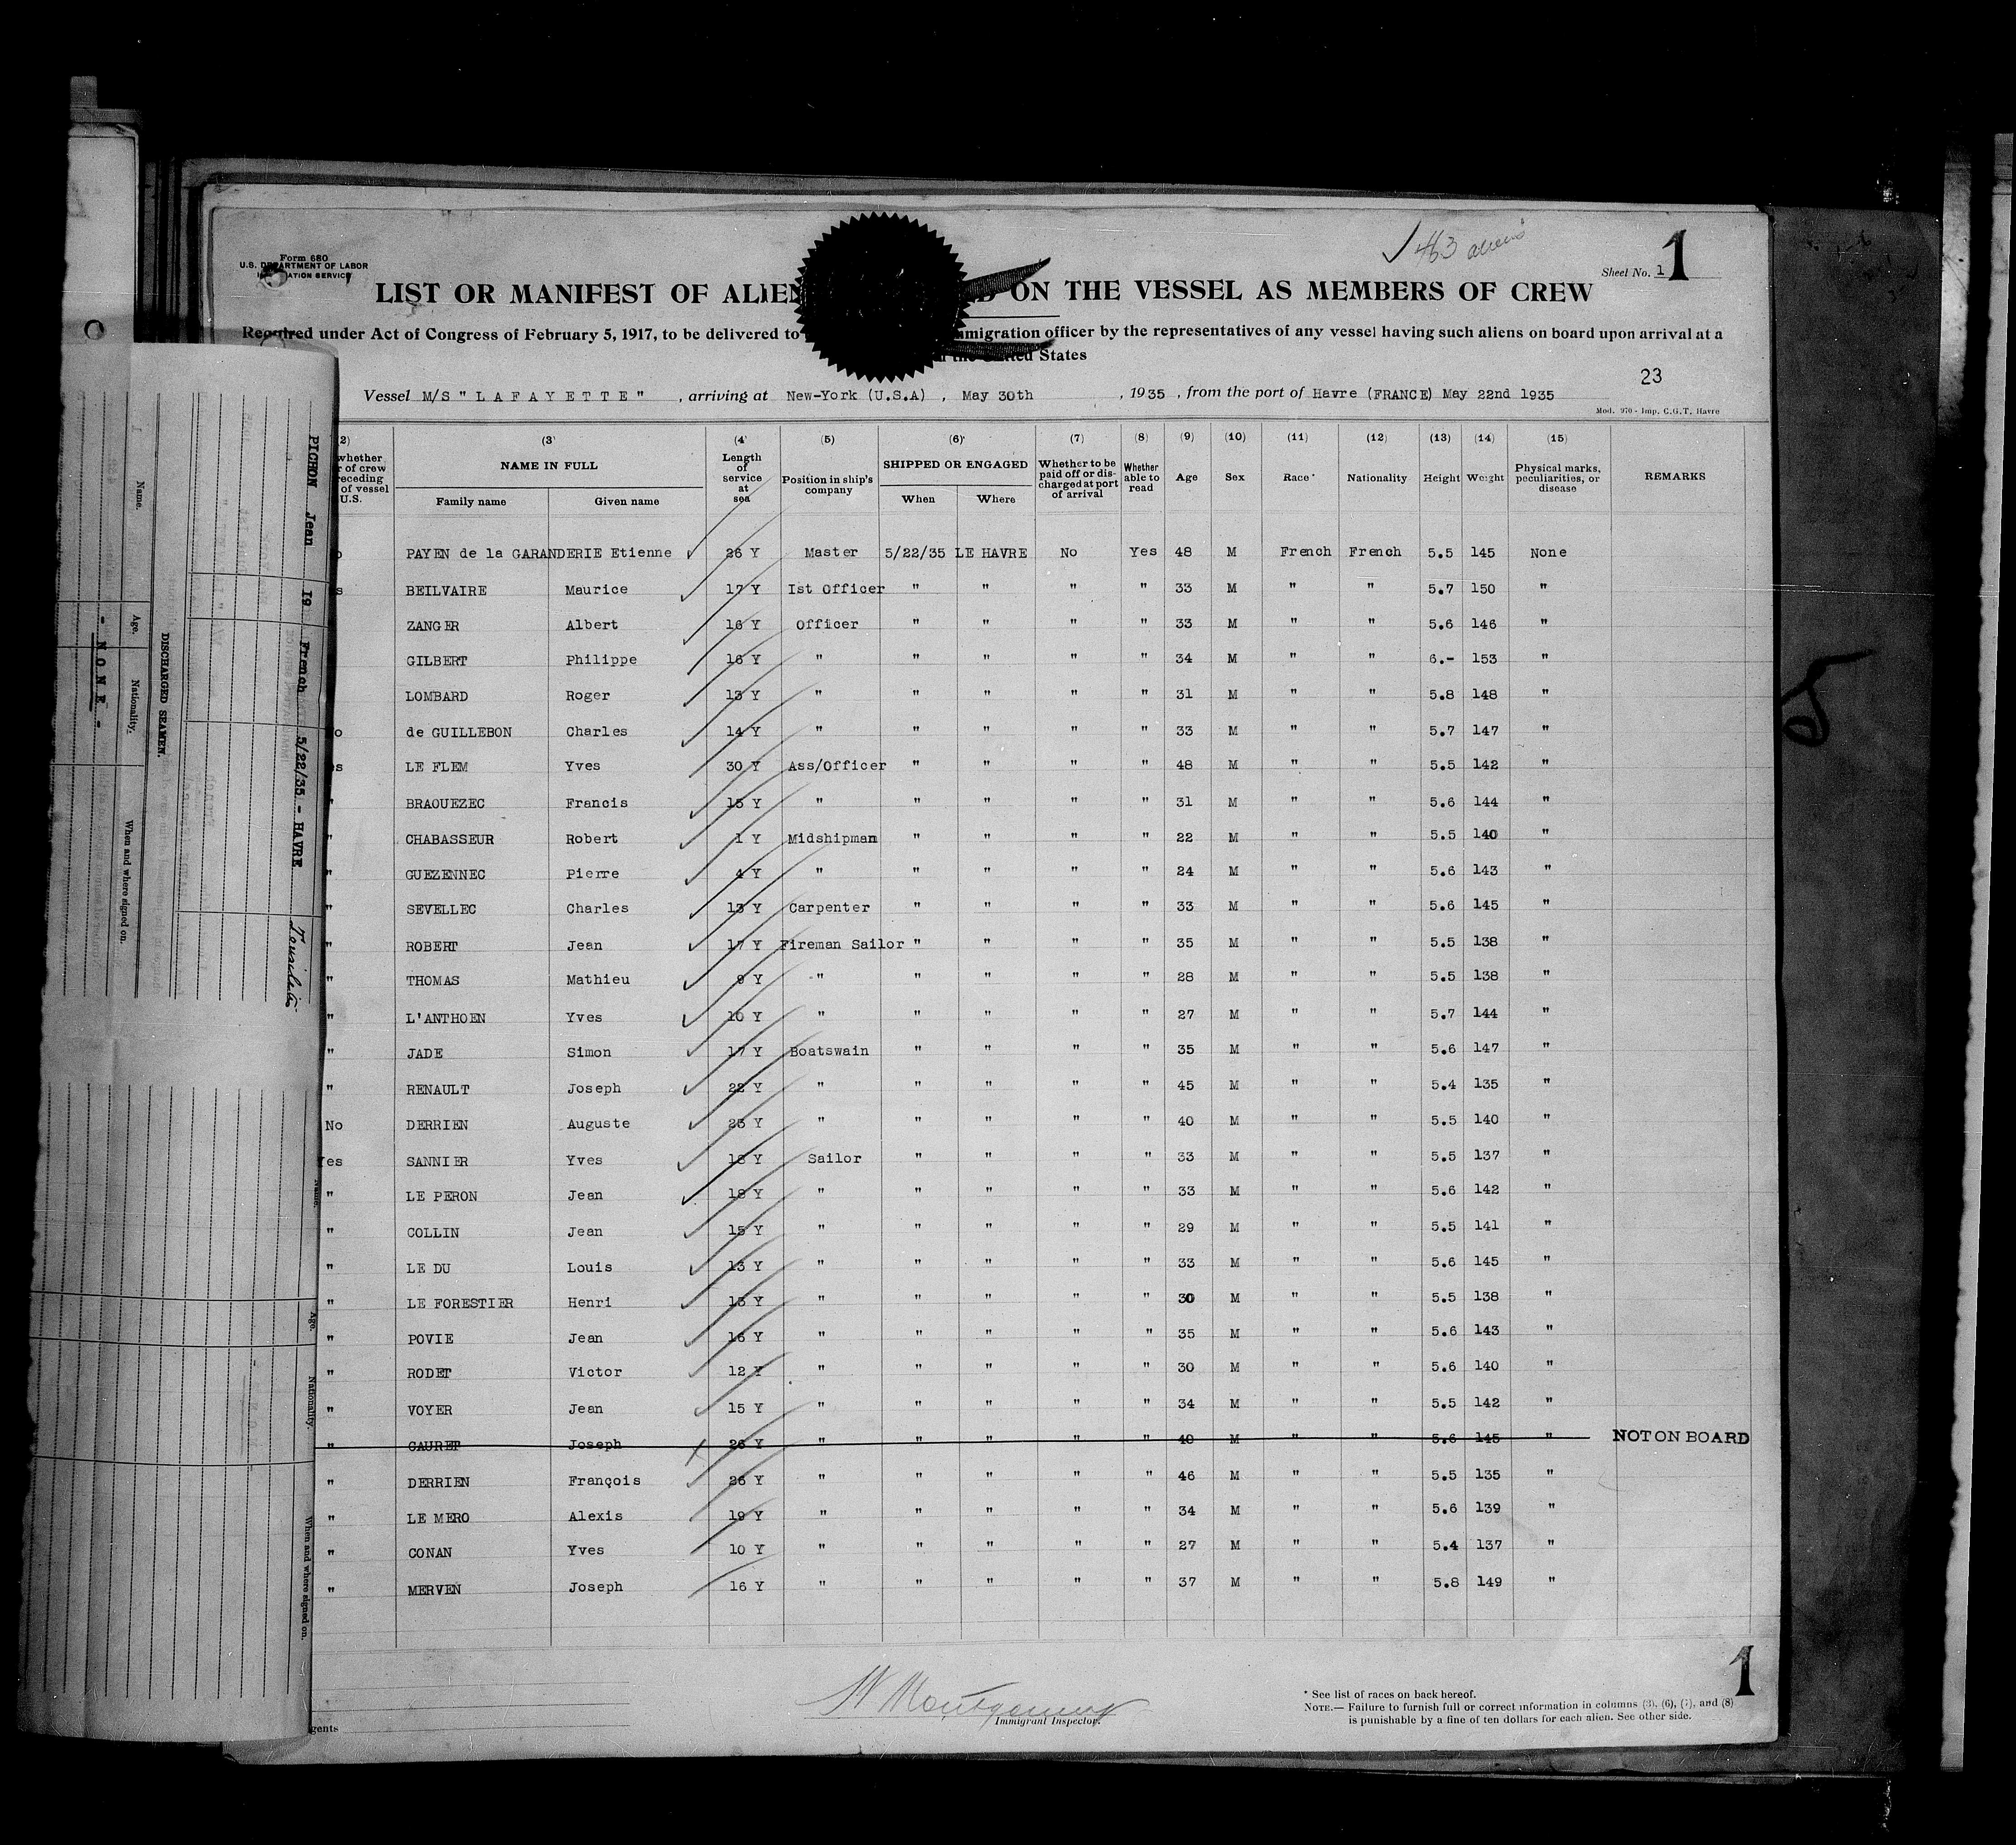 463 aliens
1
Form 680
U.S. DEPARTMENT OF LABOR
Sheet No. 1
LIST OR MANIFEST OF ALIEN ON THE VESSEL AS MEMBERS OF CREW
Required under Act of Congress of February 5, 1917, to be delivered to immigration officer by the representatives of any vessel having such aliens on board upon arrival at a
the United States
23
Vessel M/S "LAFAYETTE" , arriving at New-York (U.S.A) , May 30th , 1935 , from the port of Havre (FRANCE) May 22nd 1935
Mod. 970 - Imp. C.G.T. Havre
(3) (4) (5) (6) (7) (8) (9) (10) (11) (12) (13) (14) (15)
whether of crew preceding of vessel U.S. NAME IN FULL Family name Given name Length of service at sea Position in ship's company SHIPPED OR ENGAGED When Where Whether to be paid off or discharged at port of arrival Whether able to read Age Sex Race* Nationality Height Weight Physical marks, peculiarities, or disease REMARKS
PAYEN de la GARANDERIE Etienne 26 Y Master 5/22/35 LE HAVRE No Yes 48 M French French 5.5 145 None
BEILVAIRE Maurice 17 Y Ist Officer " " " " 33 M " " 5.7 150 "
ZANGER Albert 16 Y Officer " " " " 33 M " " 5.6 146 "
GILBERT Philippe 16 Y " " " " " 34 M " " 6.- 153 "
LOMBARD Roger 13 Y " " " " " 31 M " " 5.8 148 "
de GUILLEBON Charles 14 Y " " " " " 33 M " " 5.7 147 "
LE FLEM Yves 30 Y Ass/Officer " " " " 48 M " " 5.5 142 "
" BRAOUEZEC Francis 15 Y " " " " " 31 M " " 5.6 144 "
" CHABASSEUR Robert 1 Y Midshipman " " " " 22 M " " 5.5 140 "
" GUEZENNEC Pierre 4 Y " " " " " 24 M " " 5.6 143 "
" SEVELLEC Charles 13 Y Carpenter " " " " 33 M " " 5.6 145 "
" ROBERT Jean 17 Y Fireman Sailor " " " " 35 M " " 5.5 138 "
" THOMAS Mathieu 9 Y " " " " " 28 M " " 5.5 138 "
" L'ANTHOEN Yves 10 Y " " " " " 27 M " " 5.7 144 "
" JADE Simon 17 Y Boatswain " " " " 35 M " " 5.6 147 "
" RENAULT Joseph 22 Y " " " " " 45 M " " 5.4 135 "
No DERRIEN Auguste 23 Y " " " " " 40 M " " 5.5 140 "
Yes SANNIER Yves 18 Y Sailor " " " " 33 M " " 5.5 137 "
" LE PERON Jean 18 Y " " " " " 33 M " " 5.6 142 "
" COLLIN Jean 15 Y " " " " " 29 M " " 5.5 141 "
" LE DU Louis 13 Y " " " " " 33 M " " 5.6 145 "
" LE FORESTIER Henri 13 Y " " " " " 30 M " " 5.5 138 "
" POVIE Jean 16 Y " " " " " 35 M " " 5.6 143 "
" RODET Victor 12 Y " " " " " 30 M " " 5.6 140 "
" VOYER Jean 15 Y " " " " " 34 M " " 5.5 142 "
" CAURET Joseph 26 Y " " " " " 40 M " " 5.6 145 " NOT ON BOARD
" DERRIEN François 26 Y " " " " " 46 M " " 5.5 135 "
" LE MERO Alexis 19 Y " " " " " 34 M " " 5.6 139 "
" CONAN Yves 10 Y " " " " " 27 M " " 5.4 137 "
" MERVEN Joseph 16 Y " " " " " 37 M " " 5.8 149 "
1
W Montgomery
Immigrant Inspector.
* See list of races on back hereof.
NOTE.— Failure to furnish full or correct information in columns (3), (6), (7), and (8)
is punishable by a fine of ten dollars for each alien. See other side.
PICHON Jean 19 French 5/22/35 - HAVRE
DISCHARGED SEAMEN.
Name. Age. Nationality. When and where signed on.
- NONE -
Name. Age. Nationality. When and where signed on.